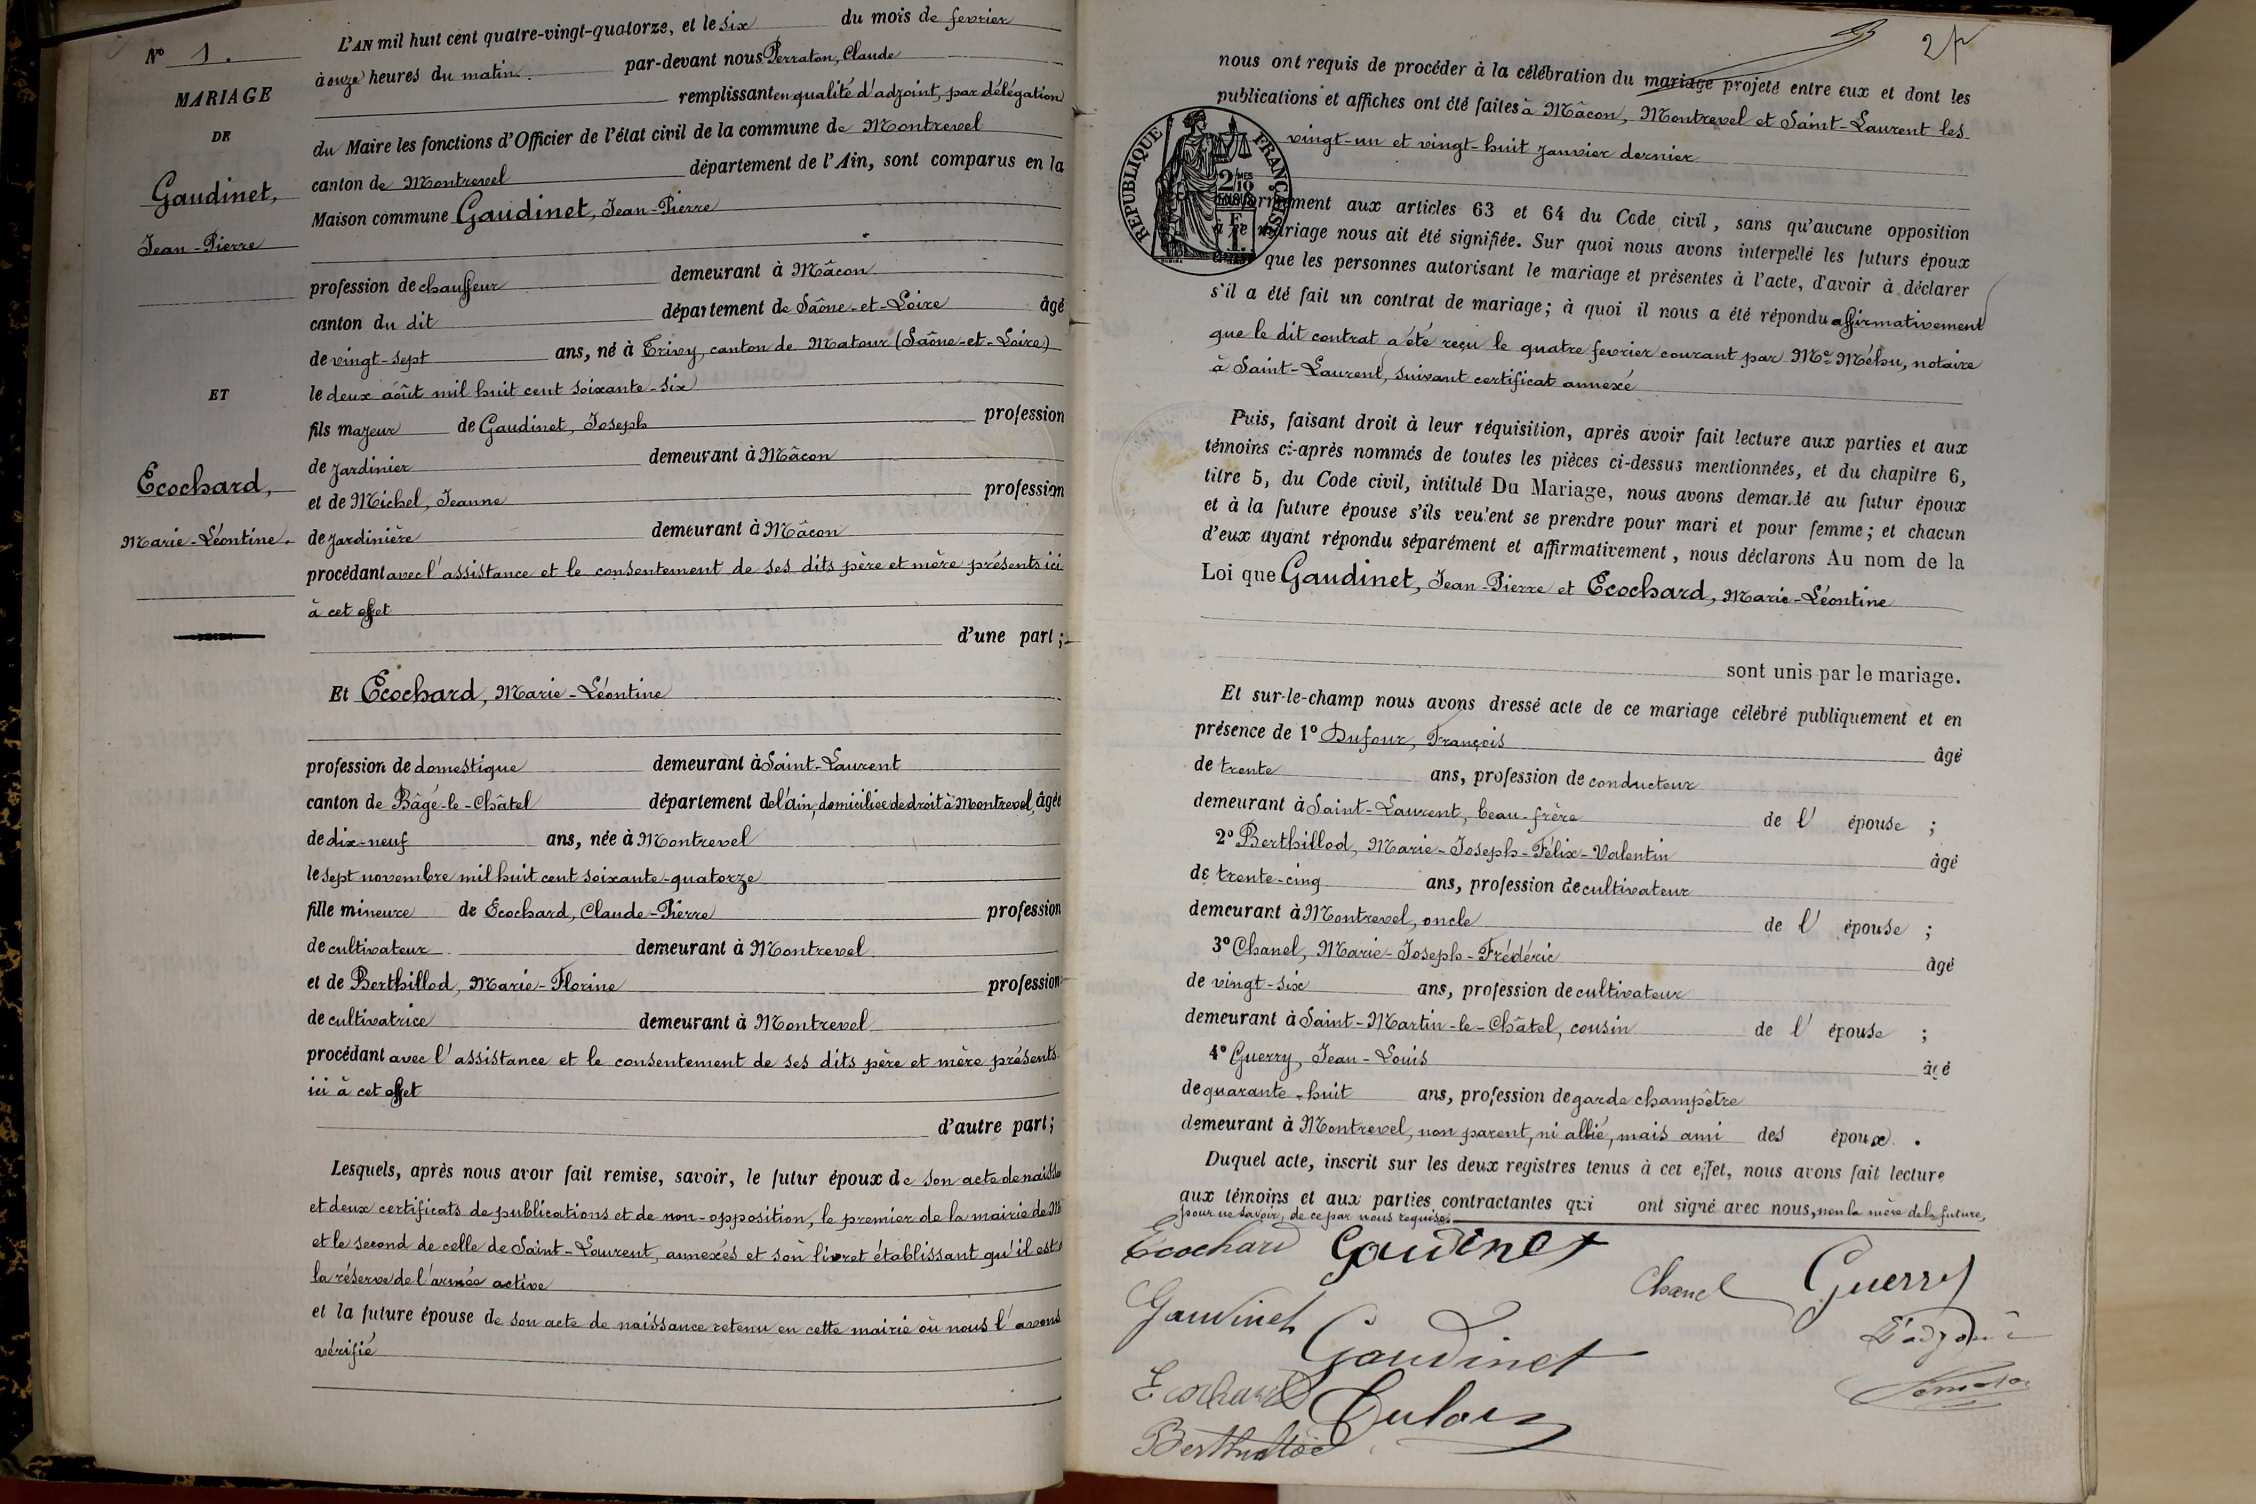 N° 1.
MARIAGE
DE
Gaudinet,
Jean-Pierre
ET
Ecochard,
Marie-Léontine.
L'AN mil huit cent quatre-vingt-quatorze, et le six du mois de fevrier
à onze heures du matin par-devant nous Perraton, Claude
remplissant en qualité d'adjoint, par délégation
du Maire les fonctions d'Officier de l'état civil de la commune de Montrevel
canton de Montrevel département de l'Ain, sont comparus en la
Maison commune Gaudinet, Jean-Pierre
profession de chauffeur demeurant à Mâcon
canton du dit département de Saône-et-Loire âgé
de vingt-sept ans, né à Trivy, canton de Matour (Saône-et-Loire)
le deux août mil huit cent soixante-six
fils majeur de Gaudinet, Joseph profession
de jardinier demeurant à Mâcon
et de Michel, Jeanne profession
de jardinière demeurant à Mâcon
procédant avec l'assistance et le consentement de ses dits père et mère présents ici
à cet effet
d'une part;
Et Ecochard, Marie-Léontine
profession de domestique demeurant à Saint-Laurent
canton de Bâgé-le-Châtel département de l'Ain, domiciliée de droit à Montrevel, âgée
de dix-neuf ans, née à Montrevel
le sept novembre mil huit cent soixante-quatorze
fille mineure de Ecochard, Claude-Pierre profession
de cultivateur demeurant à Montrevel
et de Berthillod, Marie-Florine profession
de cultivatrice demeurant à Montrevel
procédant avec l'assistance et le consentement de ses dits père et mère présents
ici à cet effet
d'autre part;
Lesquels, après nous avoir fait remise, savoir, le futur époux de son acte de naiss
et deux certificats de publications et de non-opposition, le premier de la mairie de M
et le second de celle de Saint-Laurent, annexés et son livret établissant qu'il est
la réserve de l'armée active
et la future épouse de son acte de naissance retenu en cette mairie où nous l'avons
vérifié
2
nous ont requis de procéder à la célébration du mariage projeté entre eux et dont les
publications et affiches ont été faites à Mâcon, Montrevel et Saint-Laurent les
vingt-un et vingt-huit janvier dernier
RÉPUBLIQUE FRANÇAISE
2/10 MES
EN SUS
conformément aux articles 63 et 64 du Code civil, sans qu'aucune opposition
à ce mariage nous ait été signifiée. Sur quoi nous avons interpellé les futurs époux
que les personnes autorisant le mariage et présentes à l'acte, d'avoir à déclarer
s'il a été fait un contrat de mariage; à quoi il nous a été répondu affirmativement
que le dit contrat a été reçu le quatre fevrier courant par Me Méhu, notaire
à Saint-Laurent, suivant certificat annexé
Puis, faisant droit à leur réquisition, après avoir fait lecture aux parties et aux
témoins ci-après nommés de toutes les pièces ci-dessus mentionnées, et du chapitre 6,
titre 5, du Code civil, intitulé Du Mariage, nous avons demandé au futur époux
et à la future épouse s'ils veulent se prendre pour mari et pour femme; et chacun
d'eux ayant répondu séparément et affirmativement, nous déclarons Au nom de la
Loi que Gaudinet, Jean-Pierre et Ecochard, Marie-Léontine
sont unis par le mariage.
Et sur-le-champ nous avons dressé acte de ce mariage célébré publiquement et en
présence de 1° Dufour, François âgé
de trente ans, profession de conducteur
demeurant à Saint-Laurent, beau-frère de l'épouse;
2° Berthillod, Marie-Joseph-Félix-Valentin âgé
de trente-cinq ans, profession de cultivateur
demeurant à Montrevel, oncle de l'épouse;
3° Chanel, Marie-Joseph-Frédéric âgé
de vingt-six ans, profession de cultivateur
demeurant à Saint-Martin-le-Châtel, cousin de l'épouse;
4° Guerry, Jean-Louis âgé
de quarante-huit ans, profession de garde champêtre
demeurant à Montrevel, non parent, ni allié, mais ami des époux.
Duquel acte, inscrit sur les deux registres tenus à cet effet, nous avons fait lecture
aux témoins et aux parties contractantes qui ont signé avec nous, non la mère de la future,
pour ne savoir, de ce par nous requise.
Ecochard Gaudinet
Chanel Guerry
Gaudinet
Gaudinet
L'adjoint
Ecochard
Dufour
Berthillod